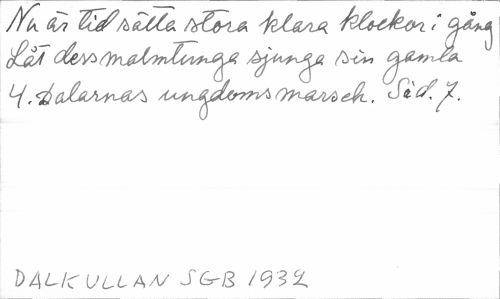 Nu är tid sätta stora klara klockor i gång
Låt dess malmtunga sjunga sin gamla
4. Dalarnas ungdomsmarsch. Sid. 7.
DALKULLAN SGB 1932